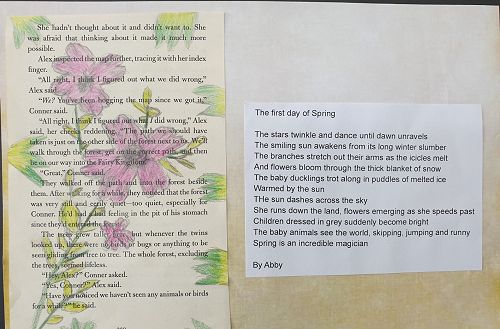 She hadn't thought about it and didn't want to. She
was afraid that thinking about it made it much more
possible.
Alex inspected the map further, tracing it with her index
finger.
"All right, I think I figured out what we did wrong,"
Alex said.
"We? You've been hogging the map since we got it,"
Conner said.
"All right, I think I figured out what I did wrong," Alex
said, her cheeks reddening. "The path we should have
taken is just on the other side of the forest next to us. We'll
walk through the forest, get on the correct path, and then
be on our way into the Fairy Kingdom."
"Great," Conner said.
They walked off the path and into the forest beside
them. After walking for a while, they noticed that the forest
was very still and eerily quiet—too quiet, especially for
Conner. He'd had a bad feeling in the pit of his stomach
since they'd entered the
The trees grew taller but whenever the twins
looked up, there were no birds or bugs or anything to be
seen gliding from tree to tree. The whole forest, excluding
the trees, seemed lifeless.
"Hey, Alex?" Conner asked.
"Yes, Conner?" Alex said.
"Have you noticed we haven't seen any animals or birds
for a while?" he said.
The first day of Spring
The stars twinkle and dance until dawn unravels
The smiling sun awakens from its long winter slumber
The branches stretch out their arms as the icicles melt
And flowers bloom through the thick blanket of snow
The baby ducklings trot along in puddles of melted ice
Warmed by the sun
THe sun dashes across the sky
She runs down the land, flowers emerging as she speeds past
Children dressed in grey suddenly become bright
The baby animals see the world, skipping, jumping and runny
Spring is an incredible magician
By Abby